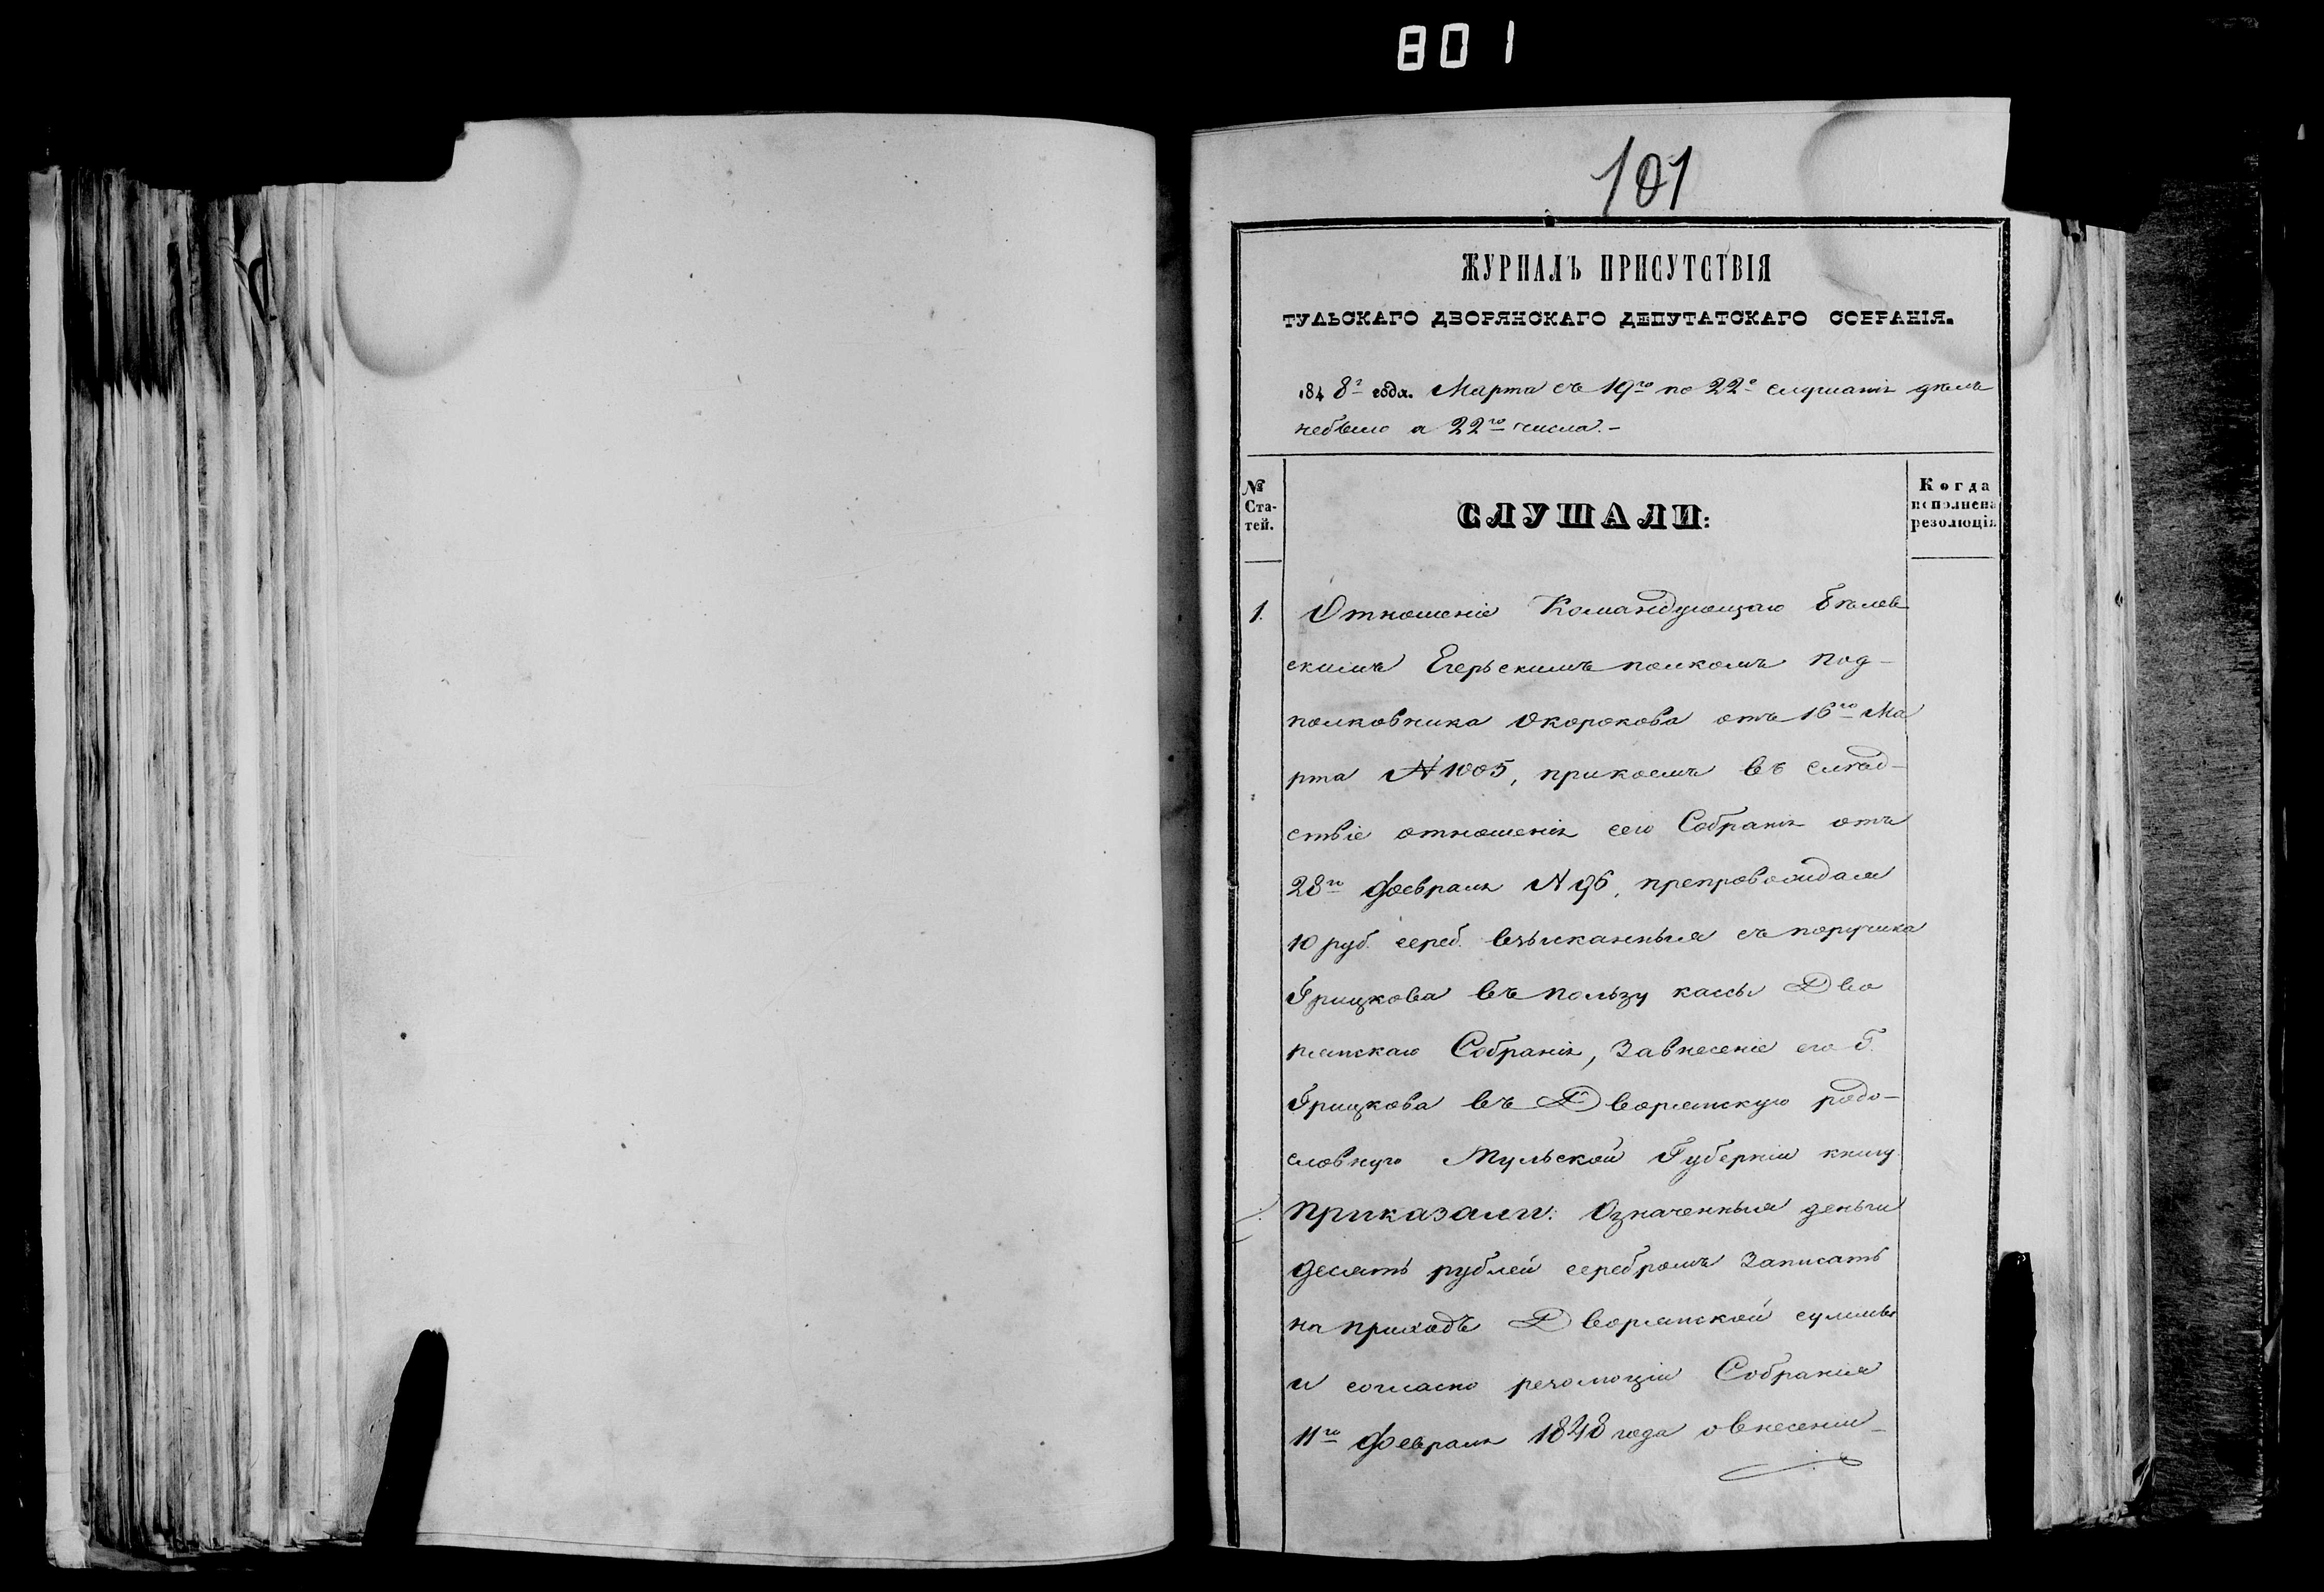 801
101
ЖУРНАЛЪ ПРИСУТСТВІЯ
ТУЛЬСКАГО ДВОРЯНСКАГО ДЕПУТАТСКАГО СОБРАНІЯ.
1848г года. Марта съ 19го по 22е слушанія дѣлъ
небыло а 22го числа.-
№ Ста-
тей.
СЛУШАЛИ:
Когда
исполнена
резолюція
1. Отношеніе Командующаго Бѣлев
скимъ Егерьскимъ полкомъ Под-
полковника Окорокова отъ 16го Ма
рта N 1005, прикоемъ въ слѣд-
ствіе отношенія сего Собранія отъ
28го Февраля N 96, препровождалъ
10 руб. сереб. взысканныя съ поручика
Грицкова въ пользу кассы Дво
рянскаго Собранія, За внесеніе его Г.
Грицкова въ Дворянскую родо-
словную Тульской Губерніи книгу
Приказали: Означенныя деньги
десять рублей серебромъ Записать
на приходъ Дворянской суммы
и согласно резолюціи Собранія
11го Февраля 1848 года о внесеніи